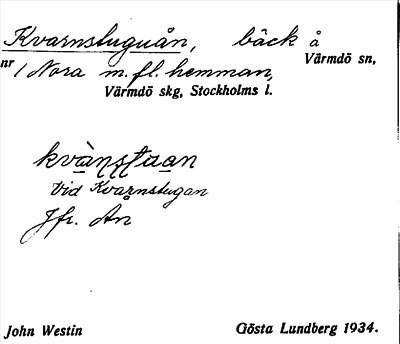 Kvarnstuguån, bäck å
Värmdö sn,
nr 1 Nora m. fl. hemman,
Värmdö skg, Stockholms l.
kvà̱ṇṣṭu̱an
Vid Kvarnstugan
Jfr. Ån
John Westin Gösta Lundberg 1934.